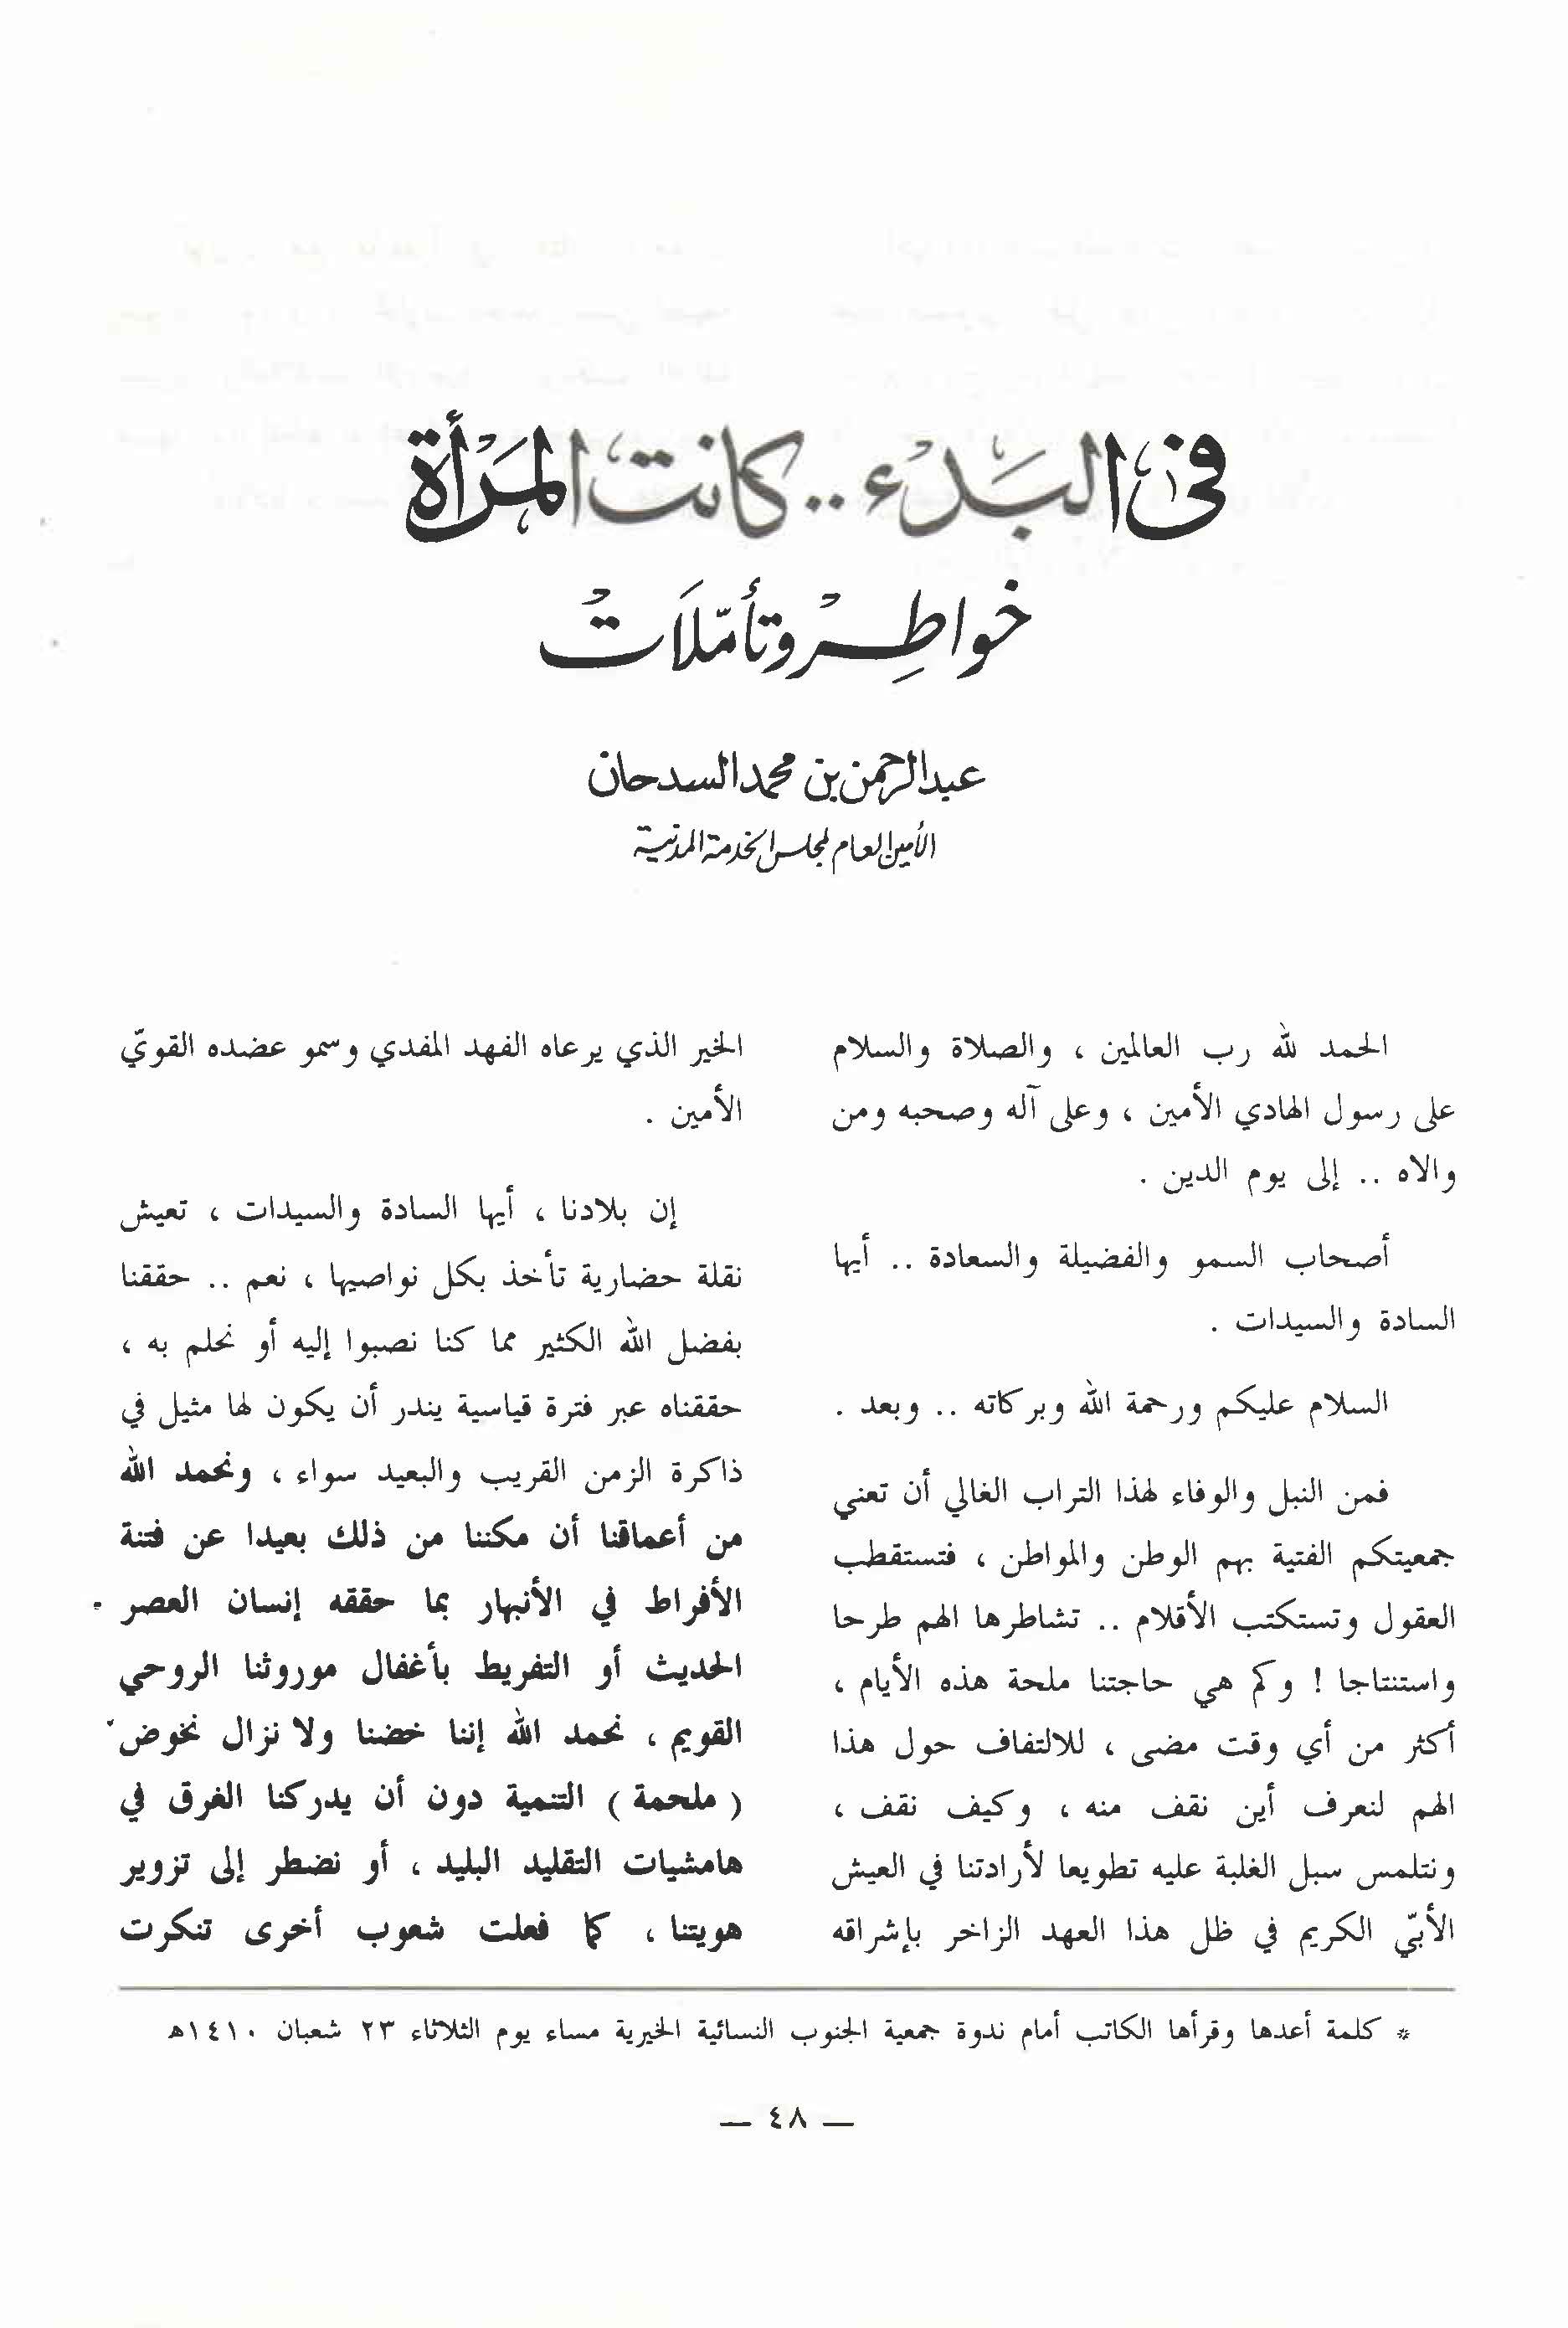 في البَدْء .. كانت المَرْأة
خواطِر وتأمّلات
عبد الرحمن بن محمد السدحان
الأمين العام لمجلس الخدمة المدنية
الحمد لله رب العالمين ، والصلاة والسلام
على رسول الهادي الأمين ، وعلى آله وصحبه ومن
والاه .. إلى يوم الدين .
أصحاب السمو والفضيلة والسعادة .. أيها
السادة والسيدات .
السلام عليكم ورحمة الله وبركاته .. وبعد .
فمن النبل والوفاء لهذا التراب الغالي أن تعني
جمعيتكم الفتية بهم الوطن والمواطن ، فتستقطب
العقول وتستكتب الأقلام .. تشاطرها الهم طرحا
واستنتاجا ! وكم هي حاجتنا ملحة هذه الأيام ،
أكثر من أي وقت مضى ، للالتفاف حول هذا
الهم لنعرف أين نقف منه ، وكيف نقف ،
ونتلمس سبل الغلبة عليه تطويعا لأرادتنا في العيش
الأبيّ الكريم في ظل هذا العهد الزاخر بإشراقه
الخير الذي يرعاه الفهد المفدي وسمو عضده القويّ
الأمين .
إن بلادنا ، أيها السادة والسيدات ، تعيش
نقلة حضارية تأخذ بكل نواصيها ، نعم .. حققنا
بفضل الله الكثير مما كنا نصبوا إليه أو نحلم به ،
حققناه عبر فترة قياسية يندر أن يكون لها مثيل في
ذاكرة الزمن القريب والبعيد سواء ، ونحمد الله
من أعماقنا أن مكننا من ذلك بعيدا عن فتنة
الأفراط في الأنبهار بما حققه إنسان العصر
الحديث أو التفريط بأغفال موروثنا الروحي
القويم ، نحمد الله إننا خضنا ولا نزال نخوض
( ملحمة ) التنمية دون أن يدركنا الغرق في
هامشيات التقليد البليد ، أو نضطر إلى تزوير
هويتنا ، كما فعلت شعوب أخرى تنكرت
* كلمة أعدها وقرأها الكاتب أمام ندوة جمعية الجنوب النسائية الخيرية مساء يوم الثلاثاء ٢٣ شعبان ١٤١٠هـ
— ٤٨ —